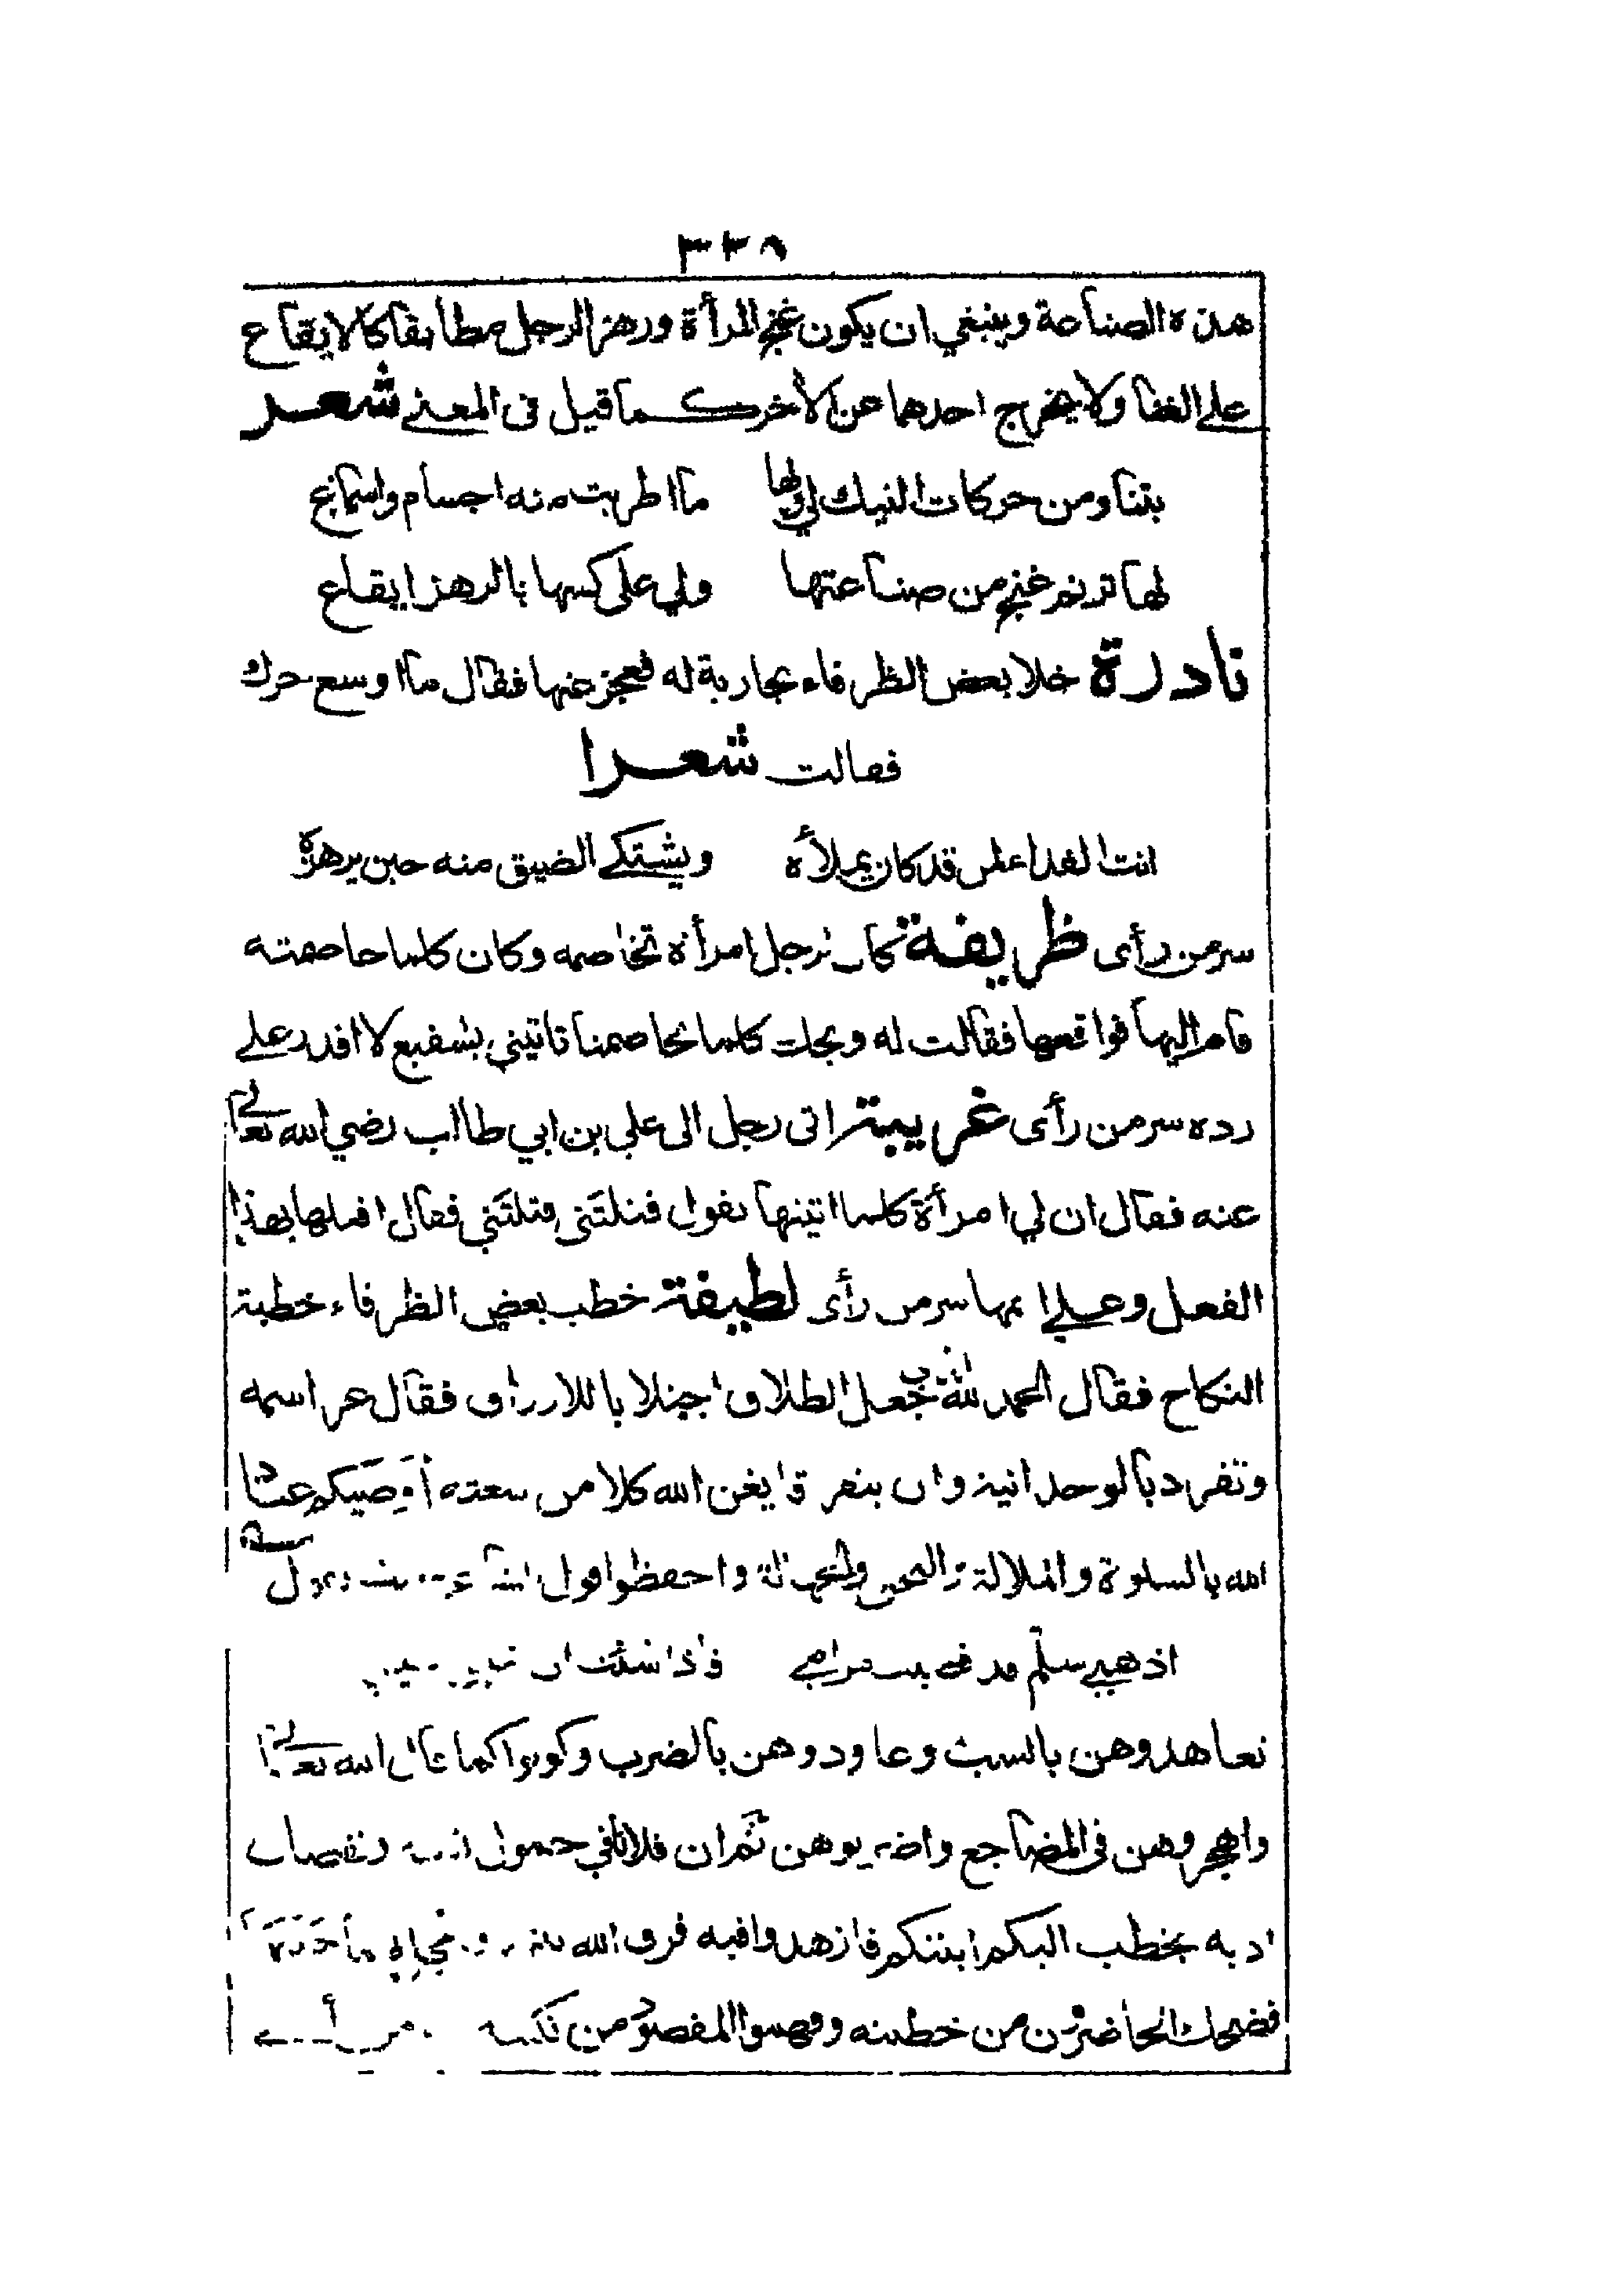 ٣٣٨
هذه الصناعة وينبغي ان يكون غنج المرأة ورهز الرجل مطابقا كالايقاع
على الغنا ولا يخرج احدهما عن الأخر كما قيل فى المعنى شعر
بتنا ومن حركات النيك لي ولها ما اطربت منه اجسام واسماع
لها ترنم غنج من صناعتها ولي على كسها بالرهز ايقاع
نادرة خلا بعض الظرفاء بجارية له فعجز عنها فقال ما اوسع حرك
فقالت شعرا
انت الفدا لمن قد كان يملأه ويشتكي الضيق منه حين يرهزه
سر من رأى ظريفة كان لرجل امرأة تخاصمه وكان كلما خاصمته
قام اليها فواقعها فقالت له ويحك كلما تخاصمنا تاتيني بشفيع لا اقدر على
رده سر من رأى غريبة اتى رجل الى علي بن ابي طالب رضي الله تعالى
عنه فقال ان لي امرأة كلما اتيتها تقول قتلتني قتلتني فقال اقتلها بهذا
الفعل وعلي اثمها سر من رأى لطيفة خطب بعض الظرفاء خطبة
النكاح فقال الحمد لله الذي جعل الطلاق اجتلابا للارزاق فقال عز اسمه
وتفرد بالوحدانية وان يتفرقا يغن الله كلا من سعته أوصيكم عباد
الله بالسلوة والملالة والتجني والجهالة واحفظوا قول الشاعر حيث يقول
اذهبي قد قضيت منك مرامي فاذا شئت ان
تعاهدوهن بالسب وعاودوهن بالضرب وكونوا كما قال الله تعالى
واهجروهن فى المضاجع واضربوهن ثم ان فلانا في خمول ونقصان
ادبه يخطب اليكم ابنتكم فازهدوا فيه فرق الله
فضحك الحاضرون من خطبته وفهموا المقصود من